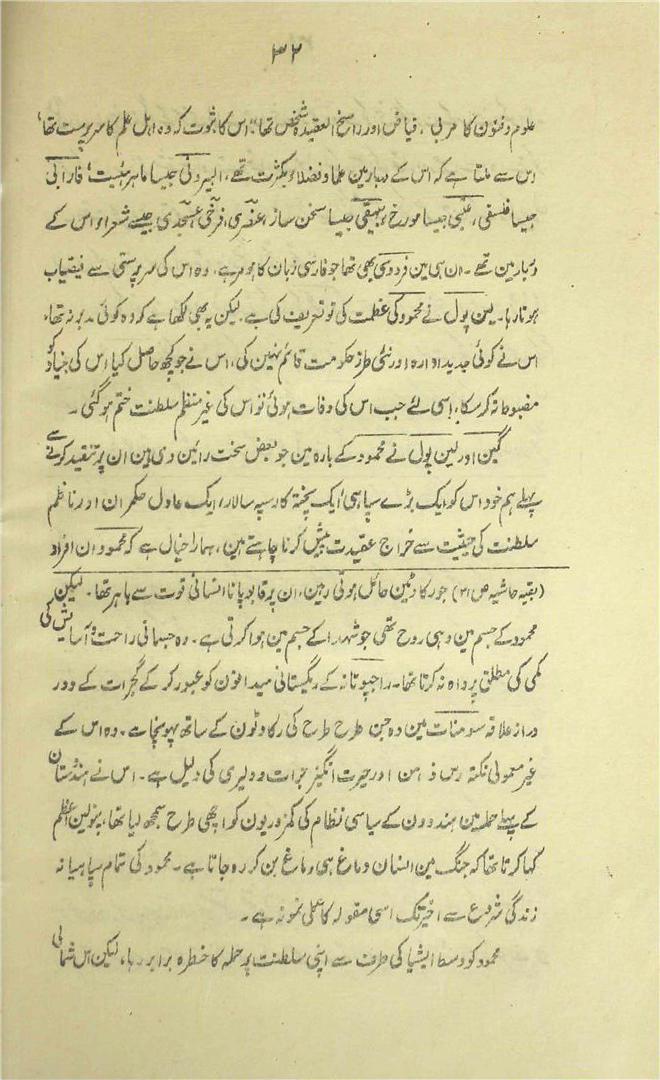 ۳۲
علوم و فنون کا مربی، فیاض اور راسخ العقیدہ شخص تھا" اس کا ثبوت کہ وہ اہل علم کا سرپرست تھا،
اس سے ملتا ہے کہ اس کے دربار مین علما و فضلاء بکثرت تھے، البیرونی جیسا ماہر ہئیت، فارابی
جیسا فلسفی، عتبی جیسا مورخ، بیہقی جیسا سخن ساز، عنصری، فرخی، عسجدی جیسے شعراء اس کے
دربار مین تھے۔ ان ہی مین فردوسی بھی تھا جو فارسی زبان کا ہومر ہے، وہ اس کی سرپرستی سے فیضیاب
ہوتا رہا۔ لین پول نے محمود کی عظمت کی تو تعریف کی ہے لیکن یہ بھی لکھا ہے کہ وہ کوئی مدبر نہ تھا،
اس نے کوئی جدید ادارہ اور نئی طرز حکومت قائم نہین کی، اس نے جو کچھ حاصل کیا اس کی بنیاد کو
مضبوط نہ کر سکا، اسی لئے جب اس کی وفات ہوئی تو اس کی غیر منظم سلطنت ختم ہو گئی۔
گبن اور لین پول نے محمود کے بارہ مین جو بعض سخت رائین دی ہین ان پر تنقید کرنے سے
پہلے ہم خود اس کو ایک بڑے سپاہی، ایک پختہ کار سپہ سالار، ایک عادل حکمران اور ناظم
سلطنت کی حیثیت سے خراج عقیدت پیش کرنا چاہتے ہین، ہمارا خیال ہے کہ محمود ان افراد
(بقیہ حاشیہ ص ۳۱) جو رکاوٹین حائل ہوتی رہین، ان پر قابو پانا انسانی قوت سے باہر تھا۔ لیکن
محمود کے جسم مین وہی روح تھی جو شہداء کے جسم مین ہوا کرتی ہے۔ وہ جسمانی راحت و آسایش کی
کمی کی مطلق پرواہ نہ کرتا تھا۔ راجپوتانہ کے ریگستانی میدانون کو عبور کر کے گجرات کے دور
دراز علاقہ سومنات مین وہ جن طرح طرح کی رکاوٹون کے ساتھ پہونچا ہے۔ وہ اس کے
غیر معمولی نکتہ رس ذہن اور حیرت انگیز جرات و دلیری کی دلیل ہے۔ اس نے ہندستان
کے پہلے حملہ مین ہندوون کے سیاسی نظام کی کمزوریون کو اچھی طرح سمجھ لیا تھا، نپولین اعظم
کہا کرتا تھا کہ جنگ مین انسان دماغ ہی دماغ بن کر رہ جاتا ہے۔ محمود کی تمام سپاہیانہ
زندگی شروع سے اخیر تک اسی مقولہ کا عملی نمونہ ہے۔
محمود کو وسط ایشیا کی طرف سے اپنی سلطنت پر حملہ کا خطرہ برابر رہا، لیکن اس شمالی